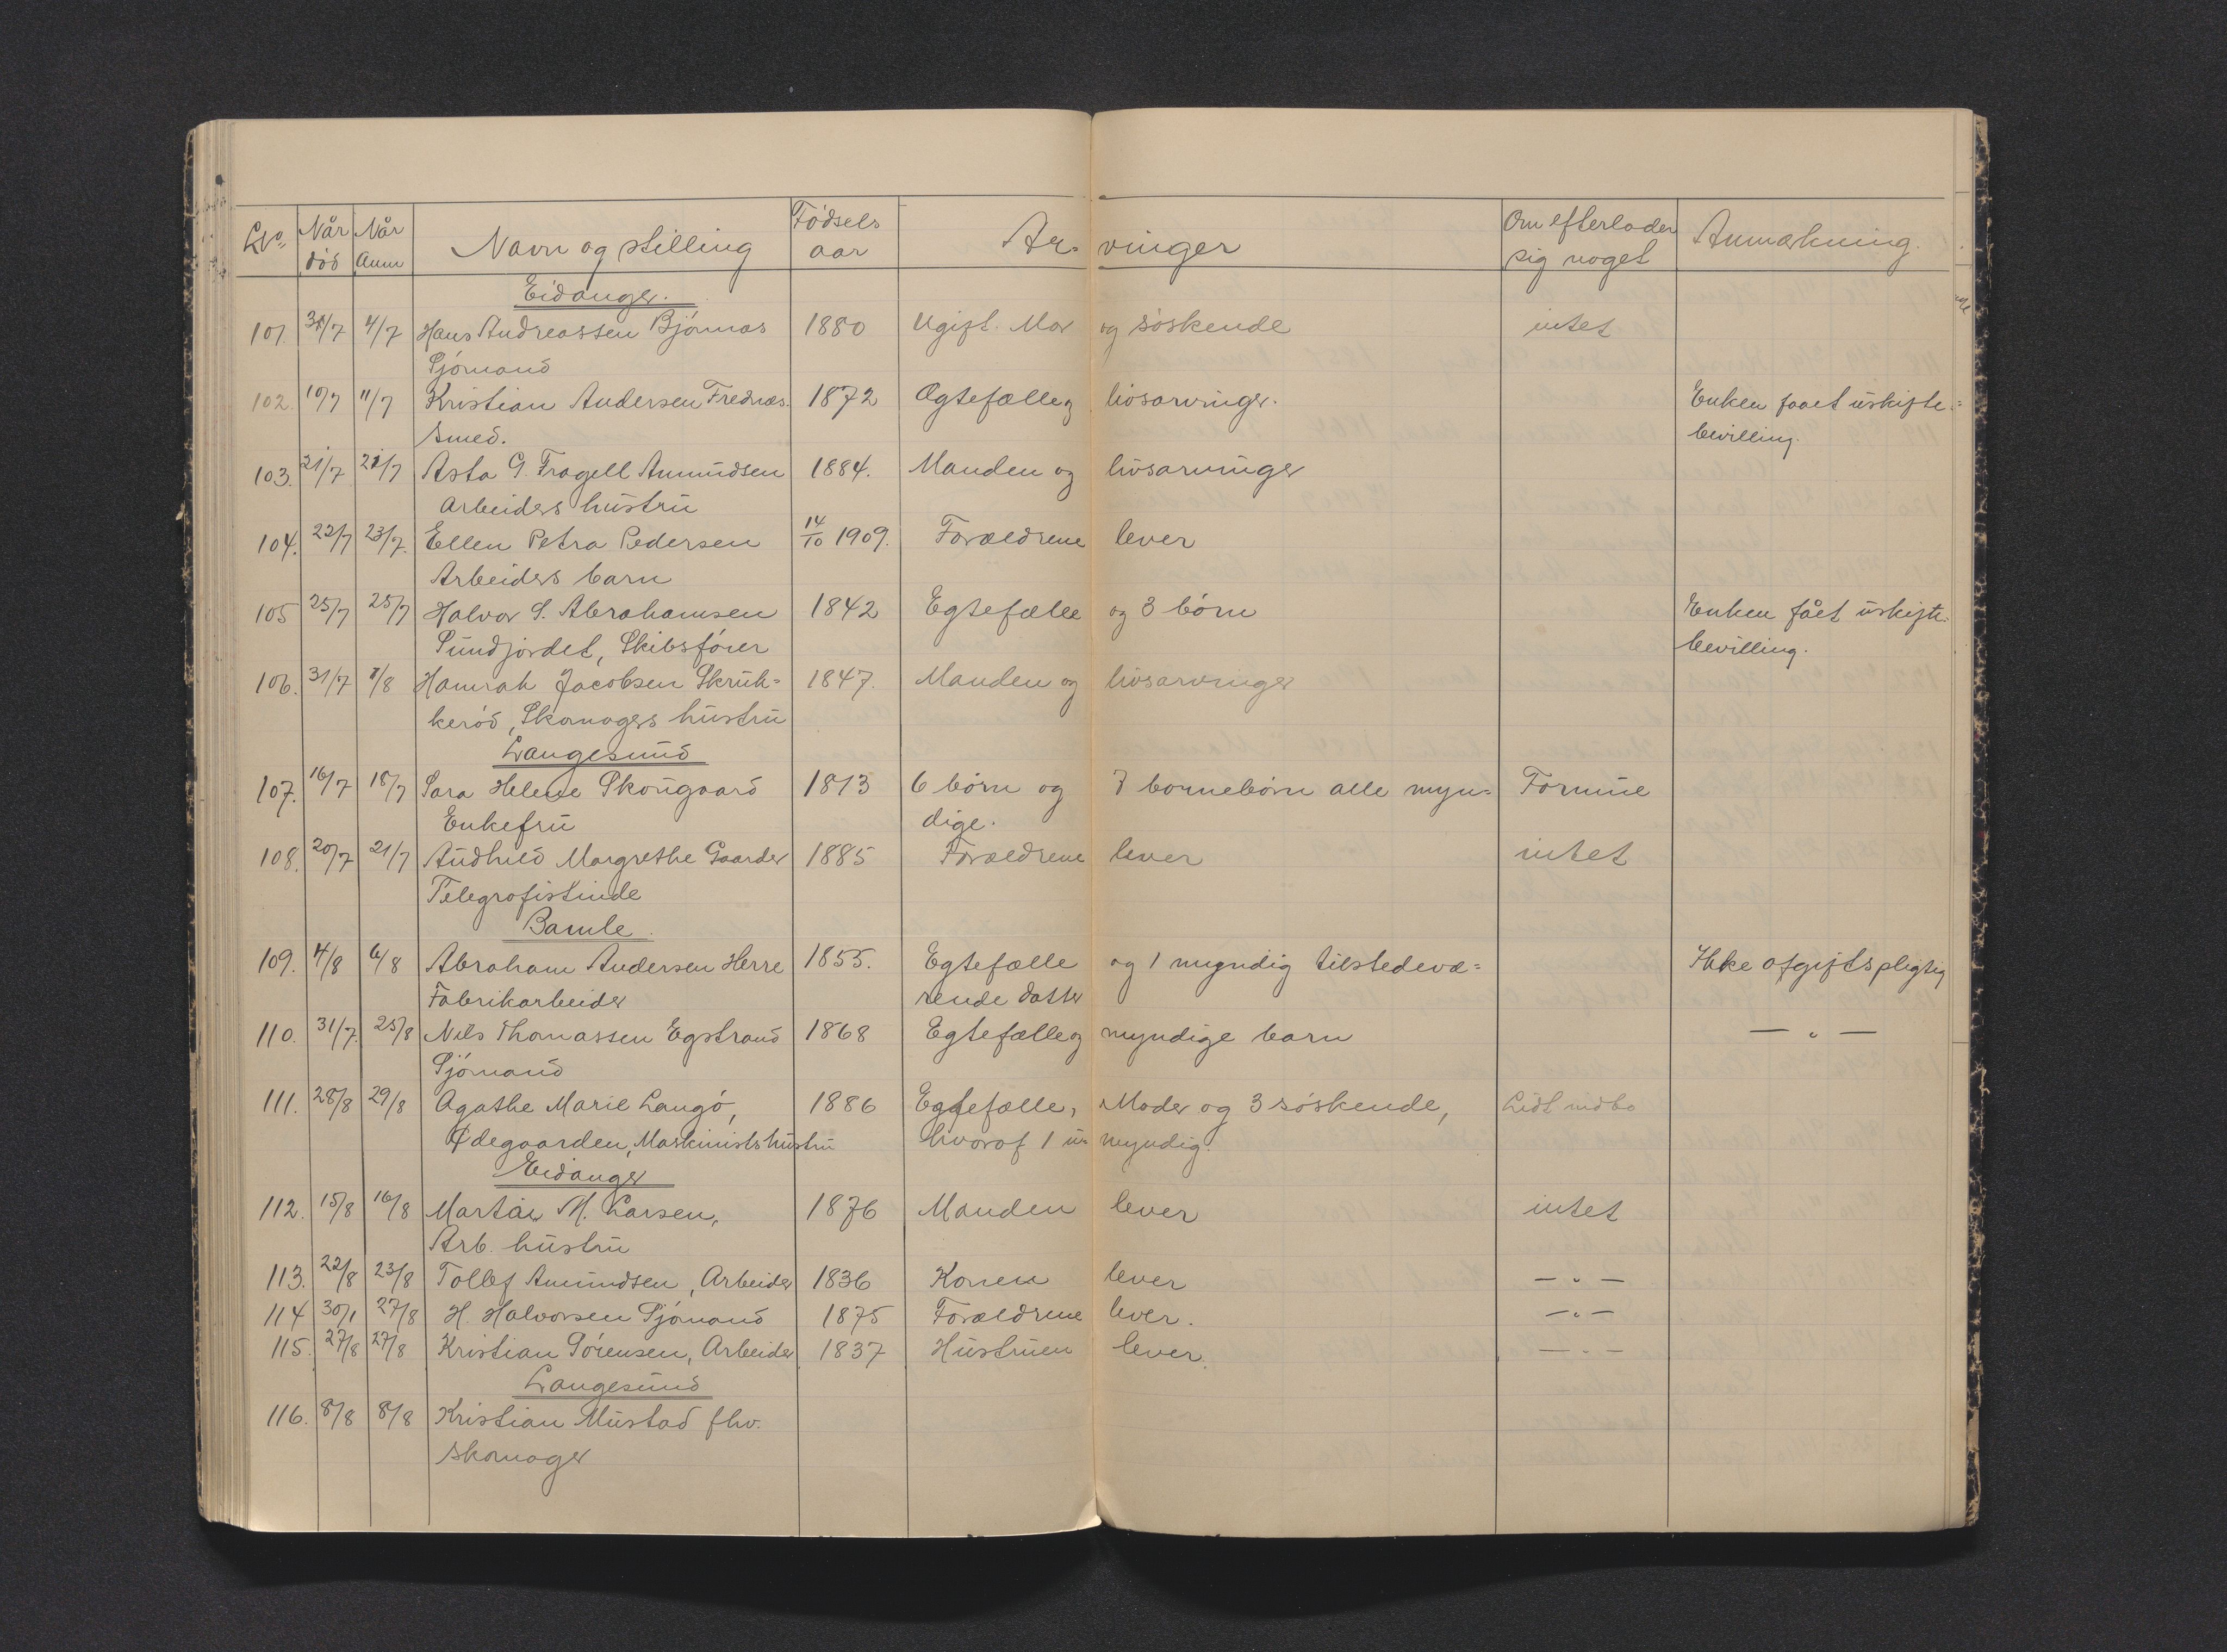 LNo. Når död Når Anm Navn og stilling Födsels aar Ar- vinger Om efterlader sig noget Anmærkning.
Eidanger.
101. 31/7 4/7 Hans Andreassen Björnnæs 1880 Ugift. Mor og söskende intet
Sjömand
102. 10/7 11/7 Kristian Andersen Frednæs. 1872 Ægtefælle og livsarvinger. Enken faaet uskifte-
Smed. bevilling.
103. 21/7 21/7 Asta G. Fragell Amundsen 1884. Manden og livsarvinger
Arbeiders hustru
104. 22/7 23/7. Ellen Petra Pedersen 14/10 1909. Forældrene lever
Arbeiders barn
105 25/7 25/7 Halvor S. Abrahamsen 1842 Egtefælle og 3 börn Enken fået uskifte-
Sundjordet, Skibsförer bevilling.
106. 31/7 1/8 Hannah Jacobsen Skruk= 1847. Manden og livsarvinger
keröd, Skomagers hustru
Langesund
107. 16/7 18/7 Sara Helene Skougaard 1813 6 börn og 7 börnebörn alle myn= Formue
Enkefru dige.
108. 20/7 21/7 Audhild Margrethe Gaarder 1885 Forældrene lever intet
Telegrafistinde
Bamle.
109. 4/8 6/8 Abraham Andersen Herre 1855. Egtefælle og 1 myndig tilstedevæ= Ikke afgiftspligtig
Fabrikarbeider rende datter
110. 31/7. 25/8 Nils Thomassen Egstrand 1868 Egtefælle og myndige barn — " —
Sjömand
111. 28/8 29/8 Agathe Marie Langö, 1886 Egtefælle, Moder og 3 söskende, Lidt indbo
Ødegaarden, Maskinists hustru hvoraf 1 u- myndig.
Eidanger
112. 15/8 16/8 M. Larsen, 1876 Manden lever intet
Arb. hustru
113. 22/8 23/8 Tollef Amundsen, Arbeider 1836 Konen lever — " —
114 30/1 27/8 H. Halvorsen Sjömand 1875 Forældrene lever. — " —
115. 27/8 27/8 Kristian Sörensen, Arbeider 1837 Hustruen lever. — " —
Langesund
116. 8/8 8/8 Kristian Mustad fhv.
skomager